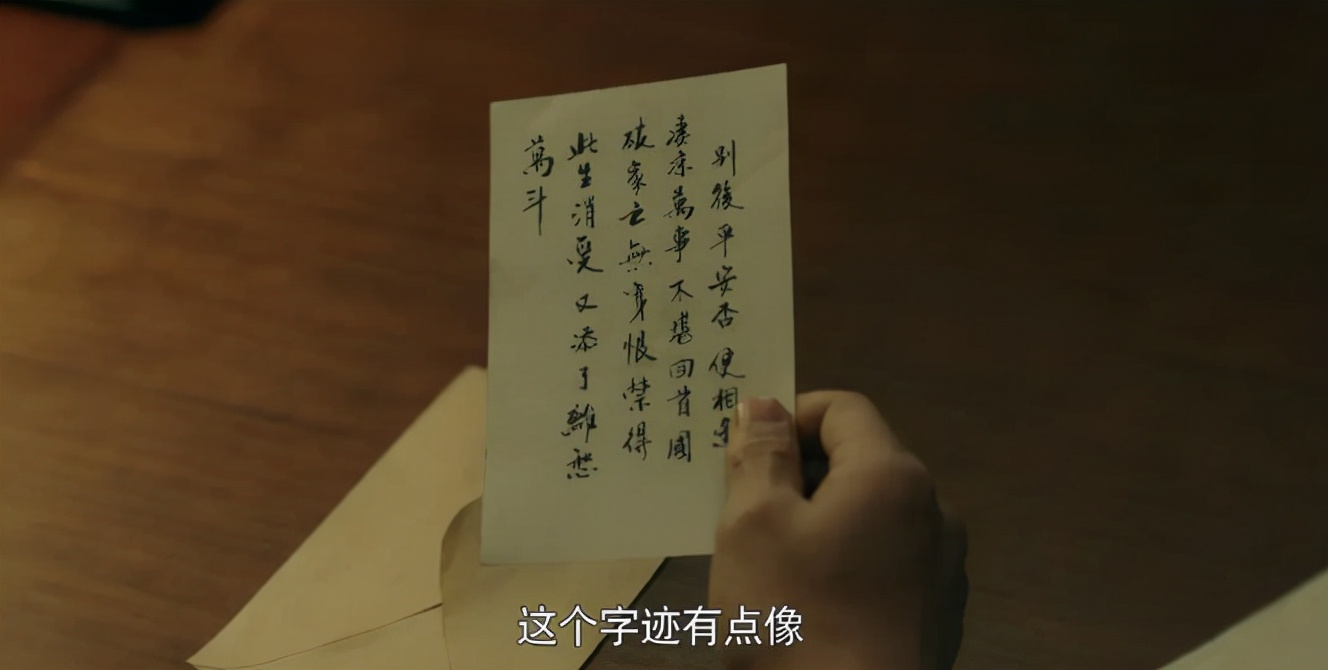 別後平安否 便相逢
凄凉萬事不堪回首國
破家亡無窮恨禁得
此生消受又添了離愁
萬斗
这个字迹有点像